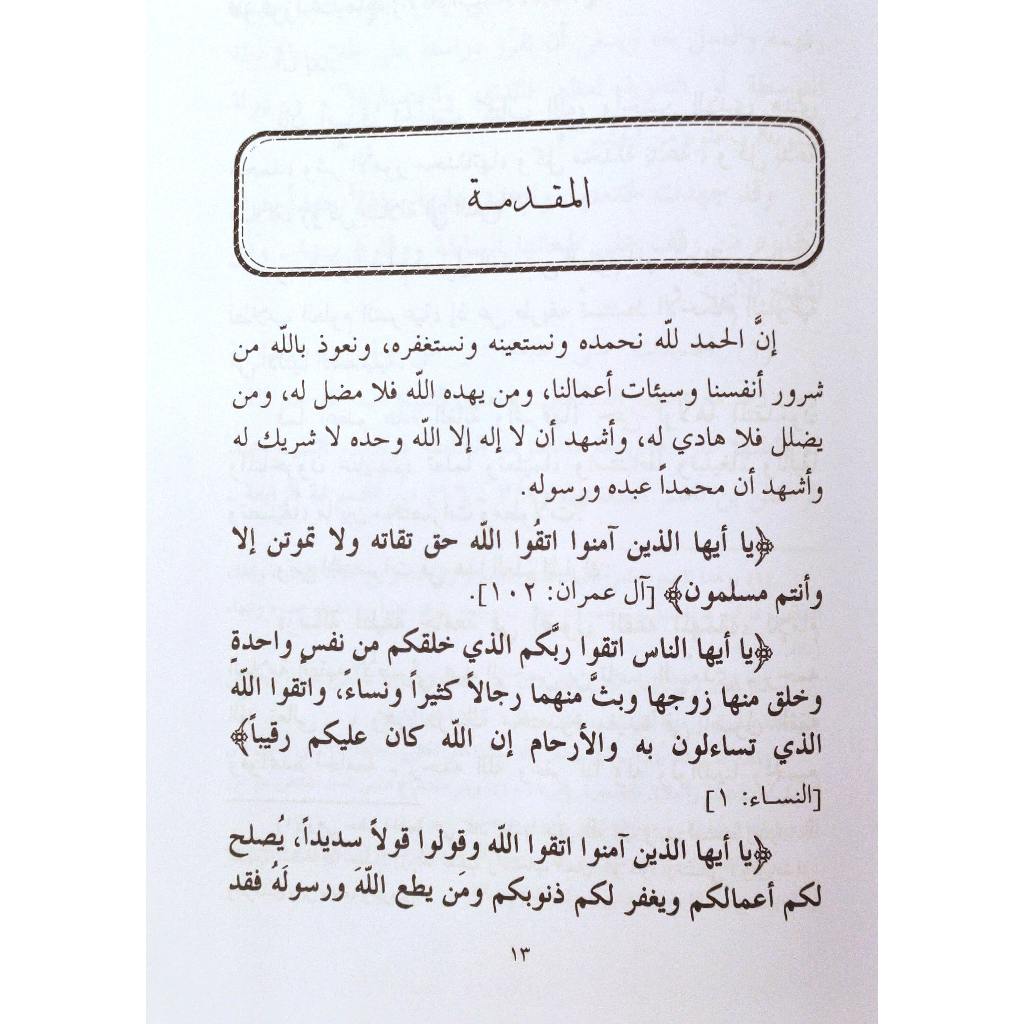 المقدمة
إنَّ الحمد لله نحمده ونستعينه ونستغفره، ونعوذ بالله من
شرور أنفسنا وسيئات أعمالنا، ومن يهده الله فلا مضل له، ومن
يضلل فلا هادي له، وأشهد أن لا إله إلا الله وحده لا شريك له
وأشهد أن محمداً عبده ورسوله.
﴿يا أيها الذين آمنوا اتقُوا الله حق تقاته ولا تموتن إلا
وأنتم مسلمون﴾ [آل عمران: ١٠٢].
﴿يا أيها الناس اتقوا ربَّكم الذي خلقكم من نفسٍ واحدةٍ
وخلق منها زوجها وبثَّ منهما رجالاً كثيراً ونساءً، واتقوا الله
الذي تساءلون به والأرحام إن الله كان عليكم رقيباً﴾
[النساء: ١]
﴿يا أيها الذين آمنوا اتقوا الله وقولوا قولاً سديداً، يُصلح
لكم أعمالكم ويغفر لكم ذنوبكم ومَن يطع اللهَ ورسولَهُ فقد
١٣